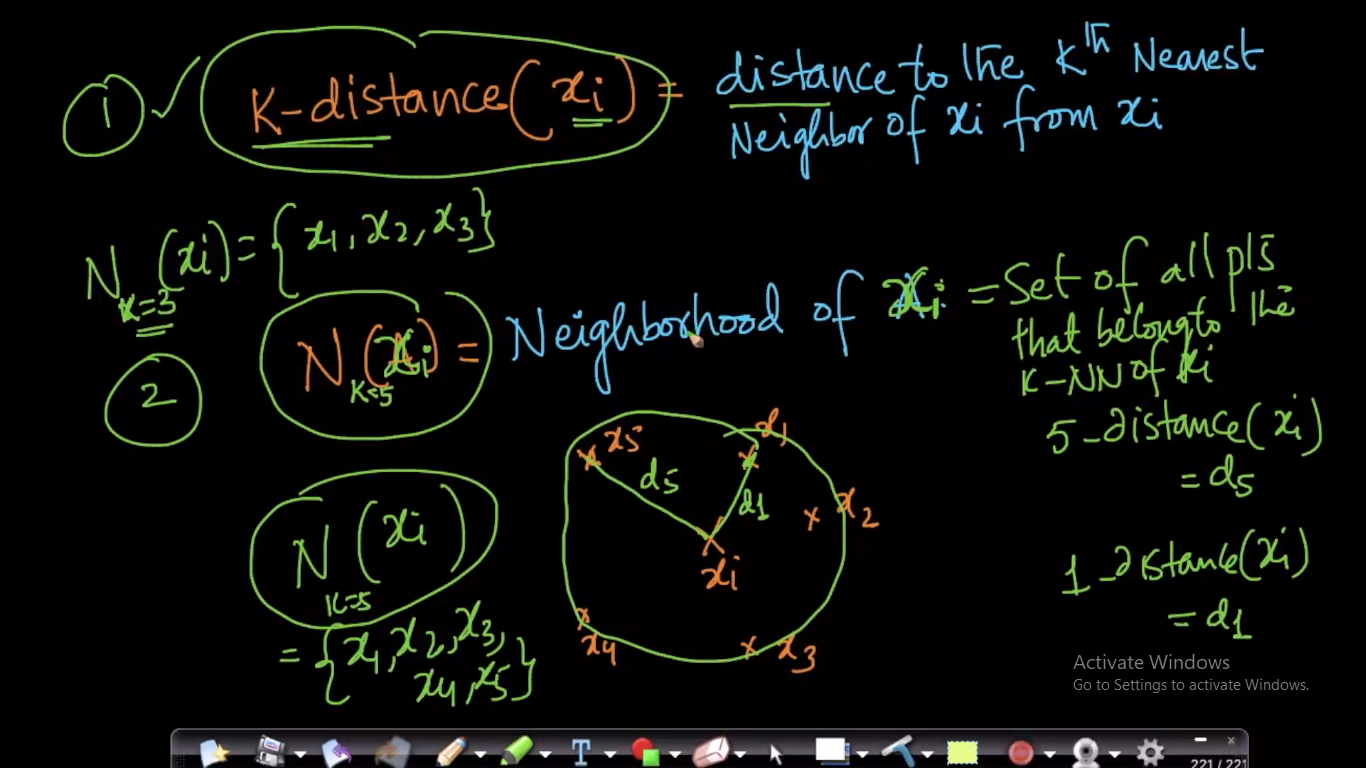 1 ✓ K-distance(xi) = distance to the Kth Nearest
Neighbor of xi from xi
N K=3 (xi) = {x1, x2, x3}
2
N K=5 (xi) = Neighborhood of xi = Set of all pts
that belong to the
K-NN of xi
5-distance(xi)
= d5
1-distance(xi)
= d1
N K=5 (xi)
= {x1, x2, x3,
x4, x5}
x5
d5
x1
d1
x2
xi
x4
x3
Activate Windows
Go to Settings to activate Windows.
T
221 / 221